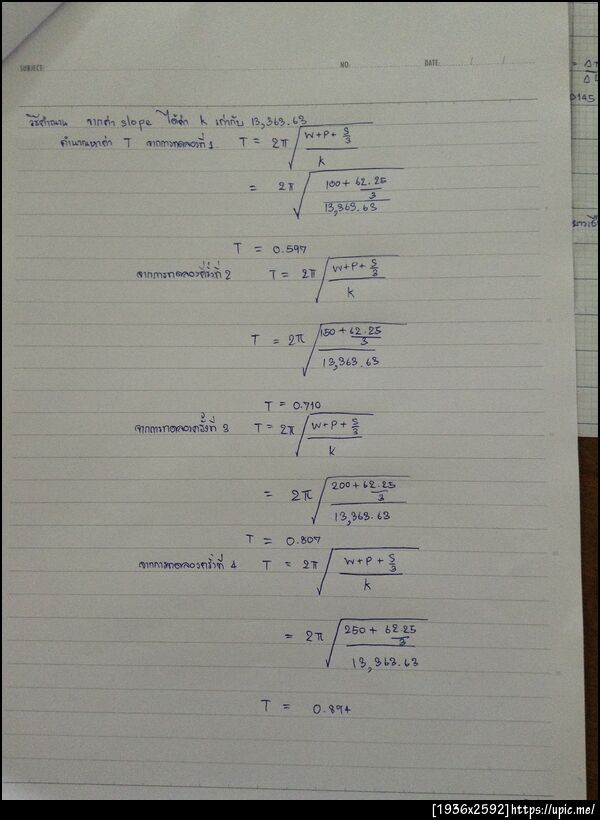 SUBJECT: NO: DATE: / /
= ΔT
ΔL
0145
วิธีคำนวณ จากค่า slope ได้ค่า k เท่ากับ 13,363.63
คำนวณหาค่า T จากการทดลองที่ 1 T = 2π √((W+P+S/3)/k)
= 2π √((100+62.25/3)/13,363.63)
T = 0.597
จากการทดลองครั้งที่ 2 T = 2π √((W+P+S/3)/k)
T = 2π √((150+62.25/3)/13,363.63)
T = 0.710
จากการทดลองครั้งที่ 3 T = 2π √((W+P+S/3)/k)
= 2π √((200+62.25/3)/13,363.63)
T = 0.807
จากการทดลองครั้งที่ 4 T = 2π √((W+P+S/3)/k)
= 2π √((250+62.25/3)/13,363.63)
T = 0.894
[1936x2592]https://upic.me/